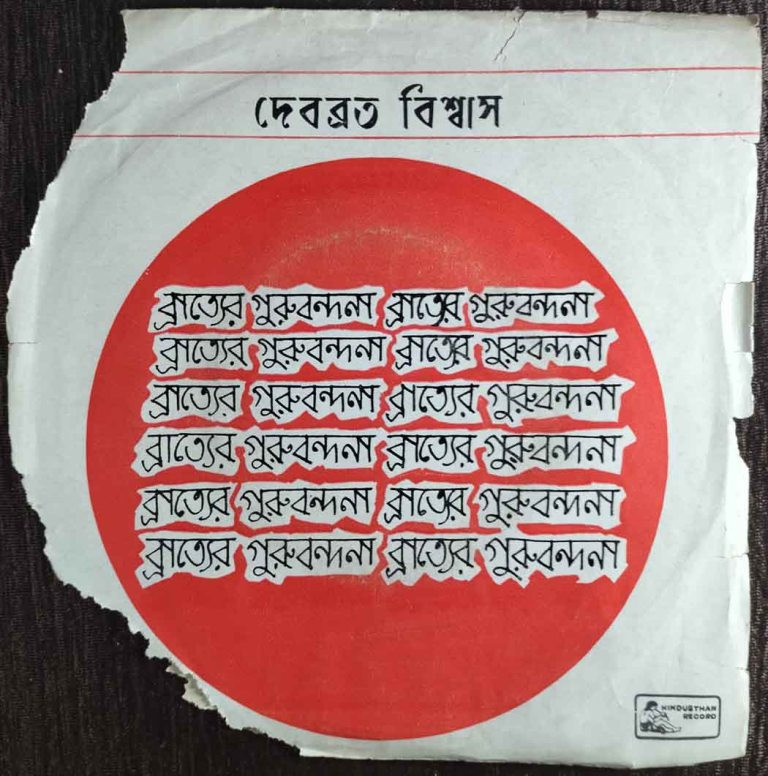 দেবব্রত বিশ্বাস
ব্রাত্যের গুরুবন্দনা ব্রাত্যের গুরুবন্দনা
ব্রাত্যের গুরুবন্দনা ব্রাত্যের গুরুবন্দনা
ব্রাত্যের গুরুবন্দনা ব্রাত্যের গুরুবন্দনা
ব্রাত্যের গুরুবন্দনা ব্রাত্যের গুরুবন্দনা
ব্রাত্যের গুরুবন্দনা ব্রাত্যের গুরুবন্দনা
ব্রাত্যের গুরুবন্দনা ব্রাত্যের গুরুবন্দনা
HINDUSTHAN
RECORD